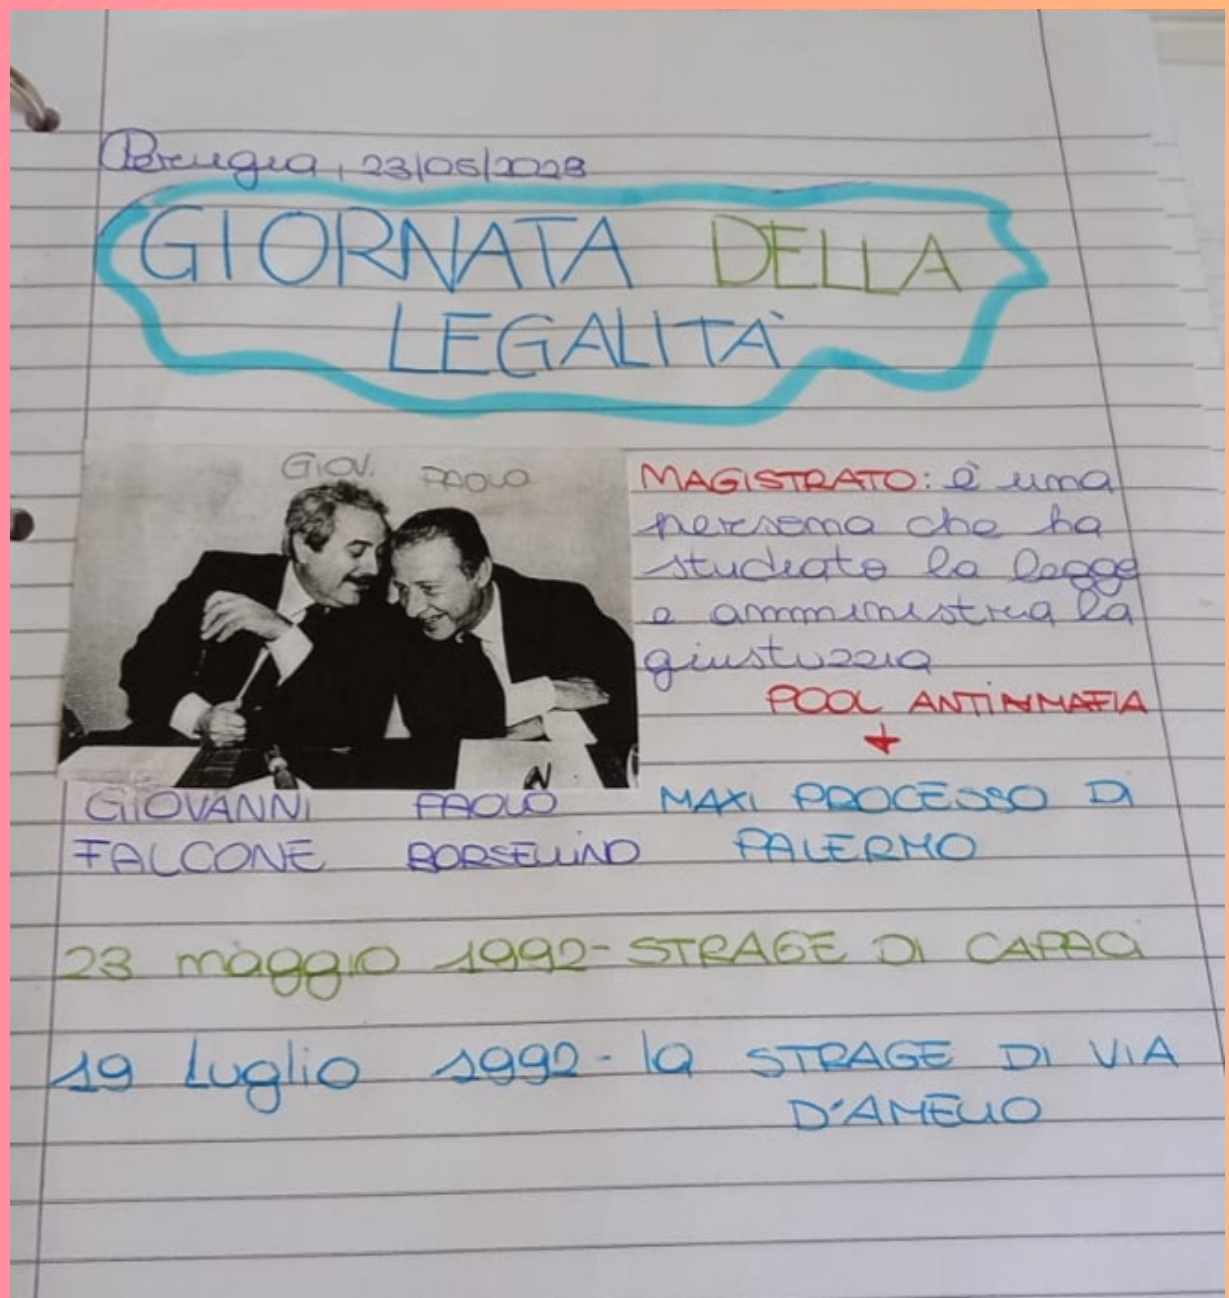 Perugia, 23/05/2023
GIORNATA DELLA
LEGALITÀ
GIOV. PAOLO
MAGISTRATO: è una
persona che ha
studiato la legge
e amministra la
giustizzia
POOL ANTIMMAFIA
GIOVANNI PAOLO
FALCONE BORSELLINO
MAXI PROCESSO DI
PALERMO
23 maggio 1992-STRAGE DI CAPACI
19 Luglio 1992-la STRAGE DI VIA
D'AMELIO